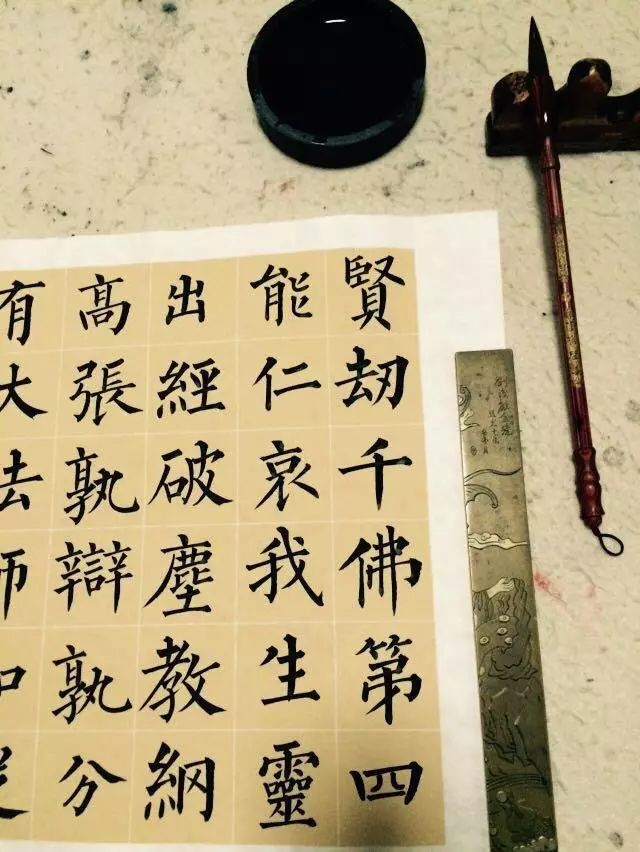 賢劫千佛第四
能仁哀我生靈
出經破塵教網
髙張孰辯孰分
有大法師